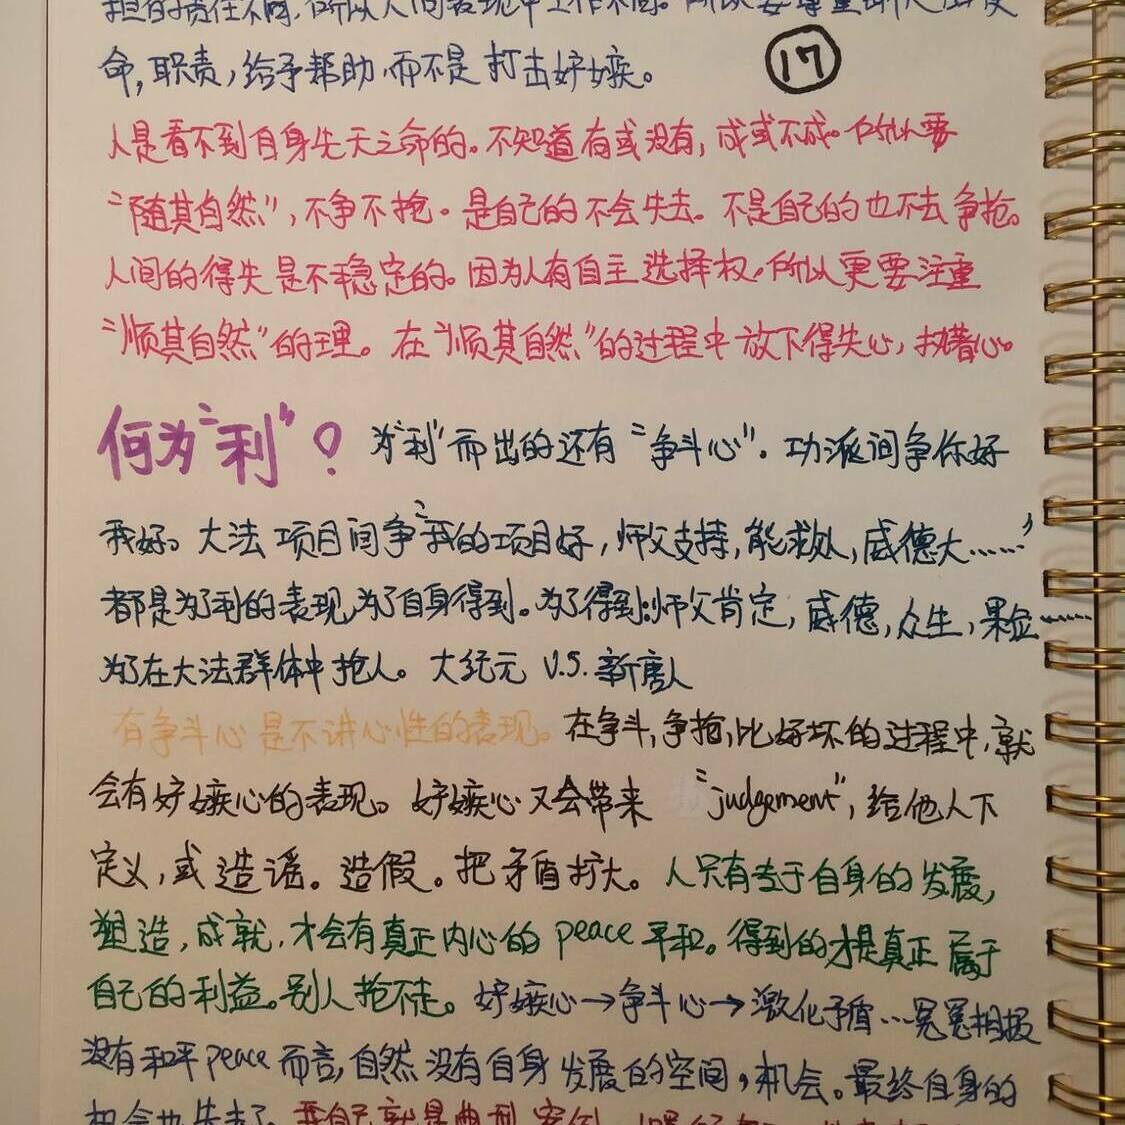 担的责任不同,所以人间表现中工作不同。所以要尊重
命,职责,给予帮助,而不是打击妒嫉。
⑰
人是看不到自身先天之命的。不知道有或没有,成或不成。所以要
“随其自然”,不争不抢。是自己的不会失去。不是自己的也不去争抢。
人间的得失是不稳定的。因为人有自主选择权。所以更要注重
“顺其自然”的理。在“顺其自然”的过程中放下得失心,执着心。
何为“利”? 为“利”而出的还有“争斗心”。功派间争你好
我好。大法项目间争“我的项目好,师父支持,能救人,威德大……”
都是为了利的表现,为了自身得到。为了得到:师父肯定,威德,众生,果位……
为了在大法群体中抢人。大纪元 V.S. 新唐人
有争斗心是不讲心性的表现。在争斗,争抢,比好坏的过程中,就
会有妒嫉心的表现。妒嫉心又会带来“judgement”,给他人下
定义,或造谣。造假。把矛盾扩大。人只有专于自身的发展,
塑造,成就,才会有真正内心的 peace 平和。得到的才是真正属于
自己的利益。别人抢不走。妒嫉心→争斗心→激化矛盾…冤冤相报
没有和平peace而言,自然没有自身发展的空间,机会。最终自身的
机会也失去了。我自己就是典型案例。